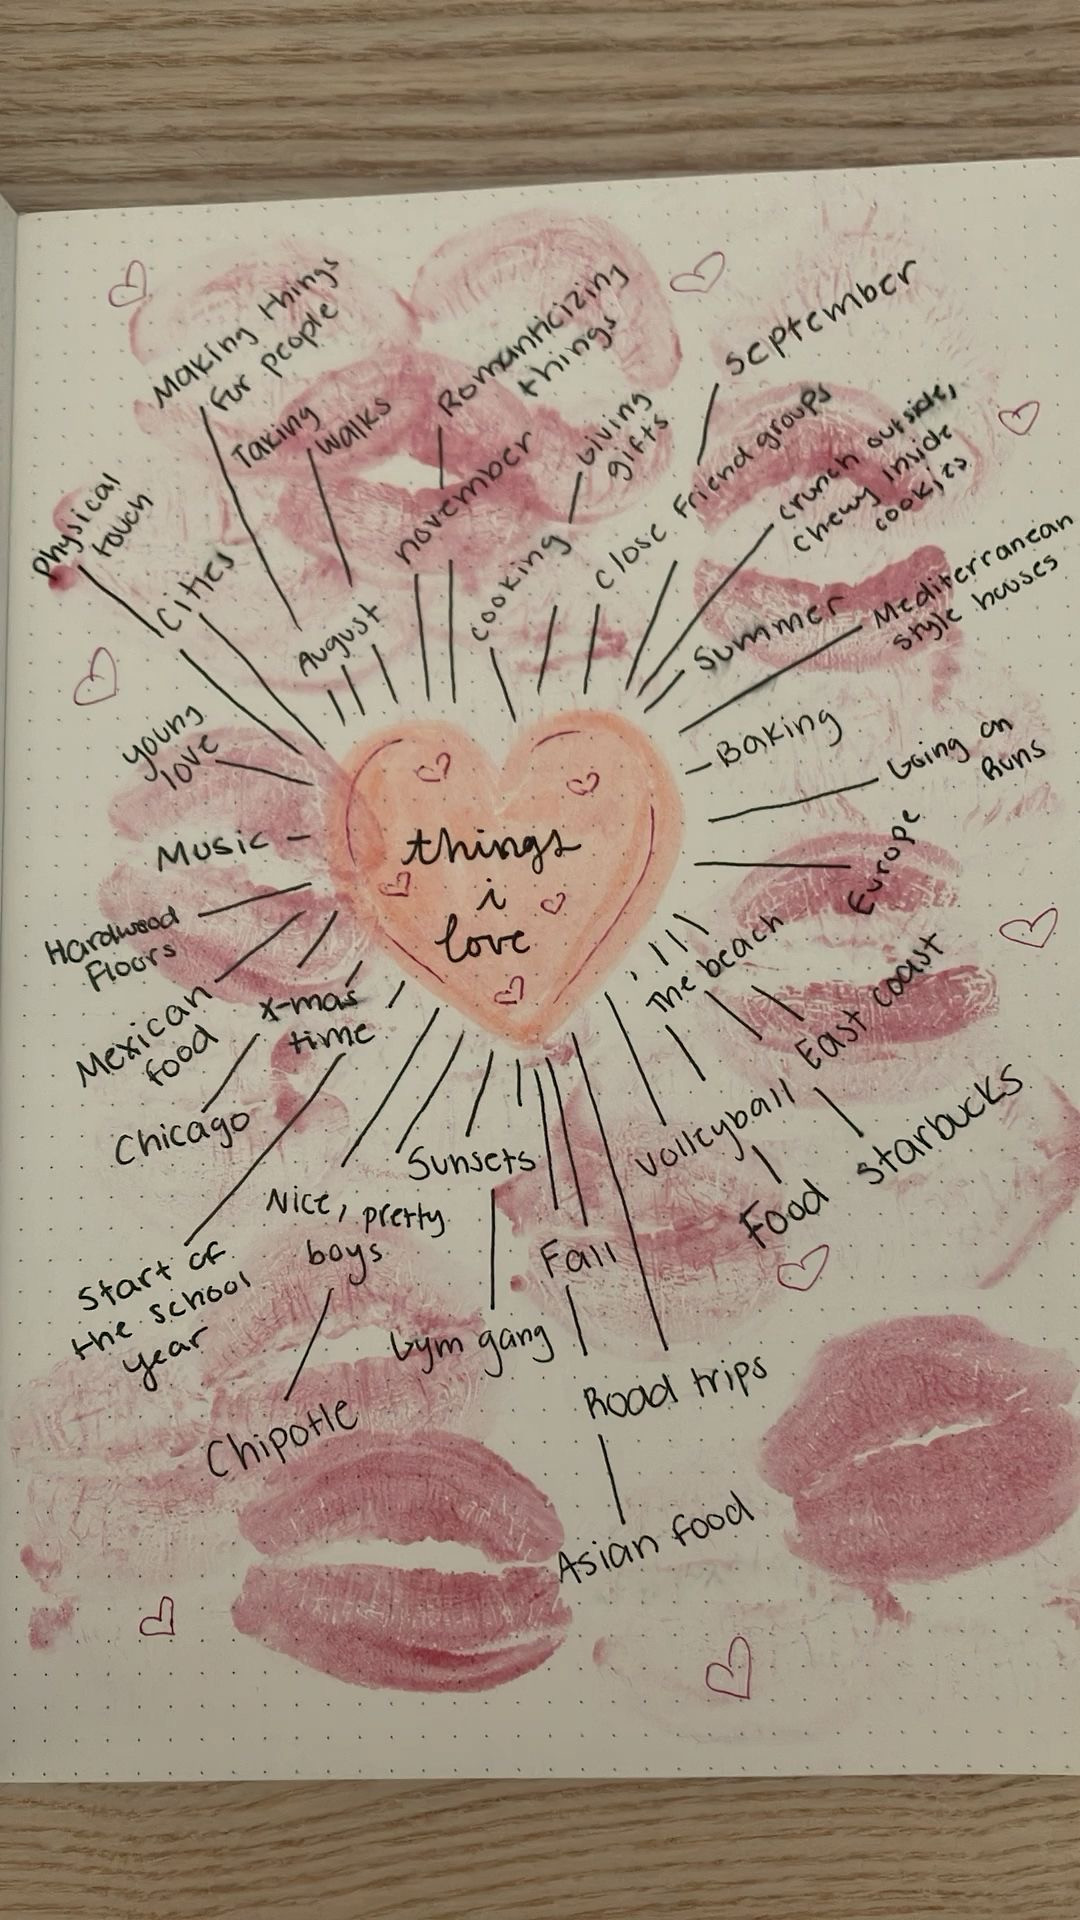 things
i
love
Making things
for people
Taking
walks
Romanticizing
things
november
Giving
gifts
September
close friend groups
crunch outside,
chewy inside
cookies
Mediterranean
style houses
Summer
cooking
August
physical
touch
Cities
young
love
Music
Hardwood
Floors
Mexican
food
X-mas
time
Chicago
Start of
the school
year
Nice, pretty
boys
Chipotle
Sunsets
Gym gang
Fall
Road trips
Asian food
Baking
Going on
Runs
Europe
The beach
East coast
volleyball
Food
Starbucks